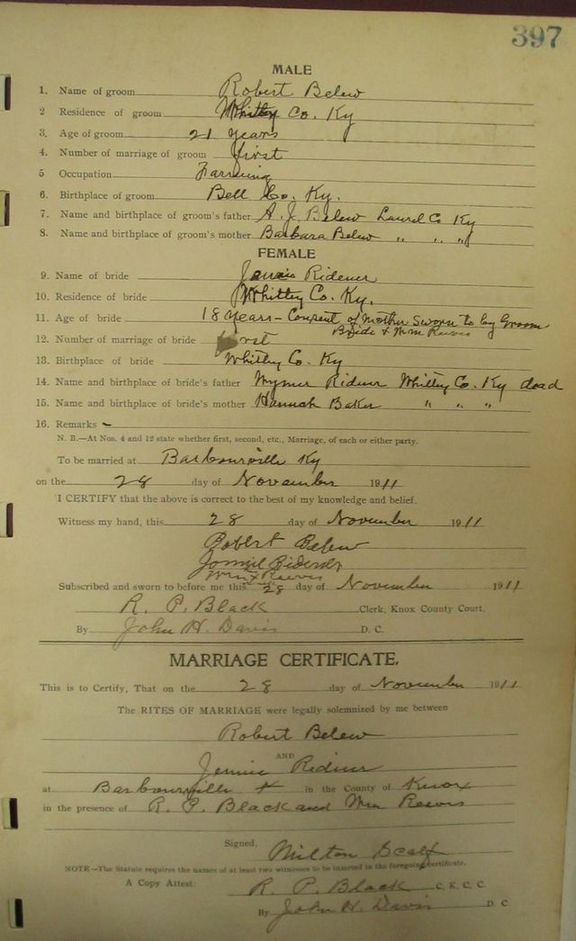 397
MALE
1. Name of groom Robert Belew
2 Residence of groom Whitley Co. Ky
3. Age of groom 21 years
4. Number of marriage of groom first
5 Occupation Farming
6. Birthplace of groom Bell Co. Ky.
7. Name and birthplace of groom's father A. J. Belew Laurel Co Ky
8. Name and birthplace of groom's mother Barbara Belew " " "
FEMALE
9. Name of bride Jennie Ridener
10. Residence of bride Whitley Co. Ky.
11. Age of bride 18 years - Consent of Mother Sworn to by Groom
Bride & Wm Reeves
12. Number of marriage of bride first
13. Birthplace of bride Whitley Co. Ky
14. Name and birthplace of bride's father Ridener Whitley Co. Ky dead
15. Name and birthplace of bride's mother Hannah Baker " " "
16. Remarks -
N. B.—At Nos. 4 and 12 state whether first, second, etc., Marriage, of each or either party.
To be married at Barbourville Ky
on the 28 day of November 1911
I CERTIFY that the above is correct to the best of my knowledge and belief.
Witness my hand, this 28 day of November 1911
Robert Belew
Wm Reeves
Subscribed and sworn to before me this 28 day of November 1911
R. P. Black Clerk, Knox County Court.
By John H. Davis D. C.
MARRIAGE CERTIFICATE.
This is to Certify, That on the 28 day of November 1911
The RITES OF MARRIAGE were legally solemnized by me between
Robert Belew
AND
Jennie Ridener
at Barbourville in the County of Knox
in the presence of R. P. Black and Wm Reeves
Signed, Milton Scalf
NOTE—The Statute requires the names of at least two witnesses to be inserted in the foregoing certificate.
A Copy Attest: R. P. Black C. K. C. C.
By John H. Davis D C